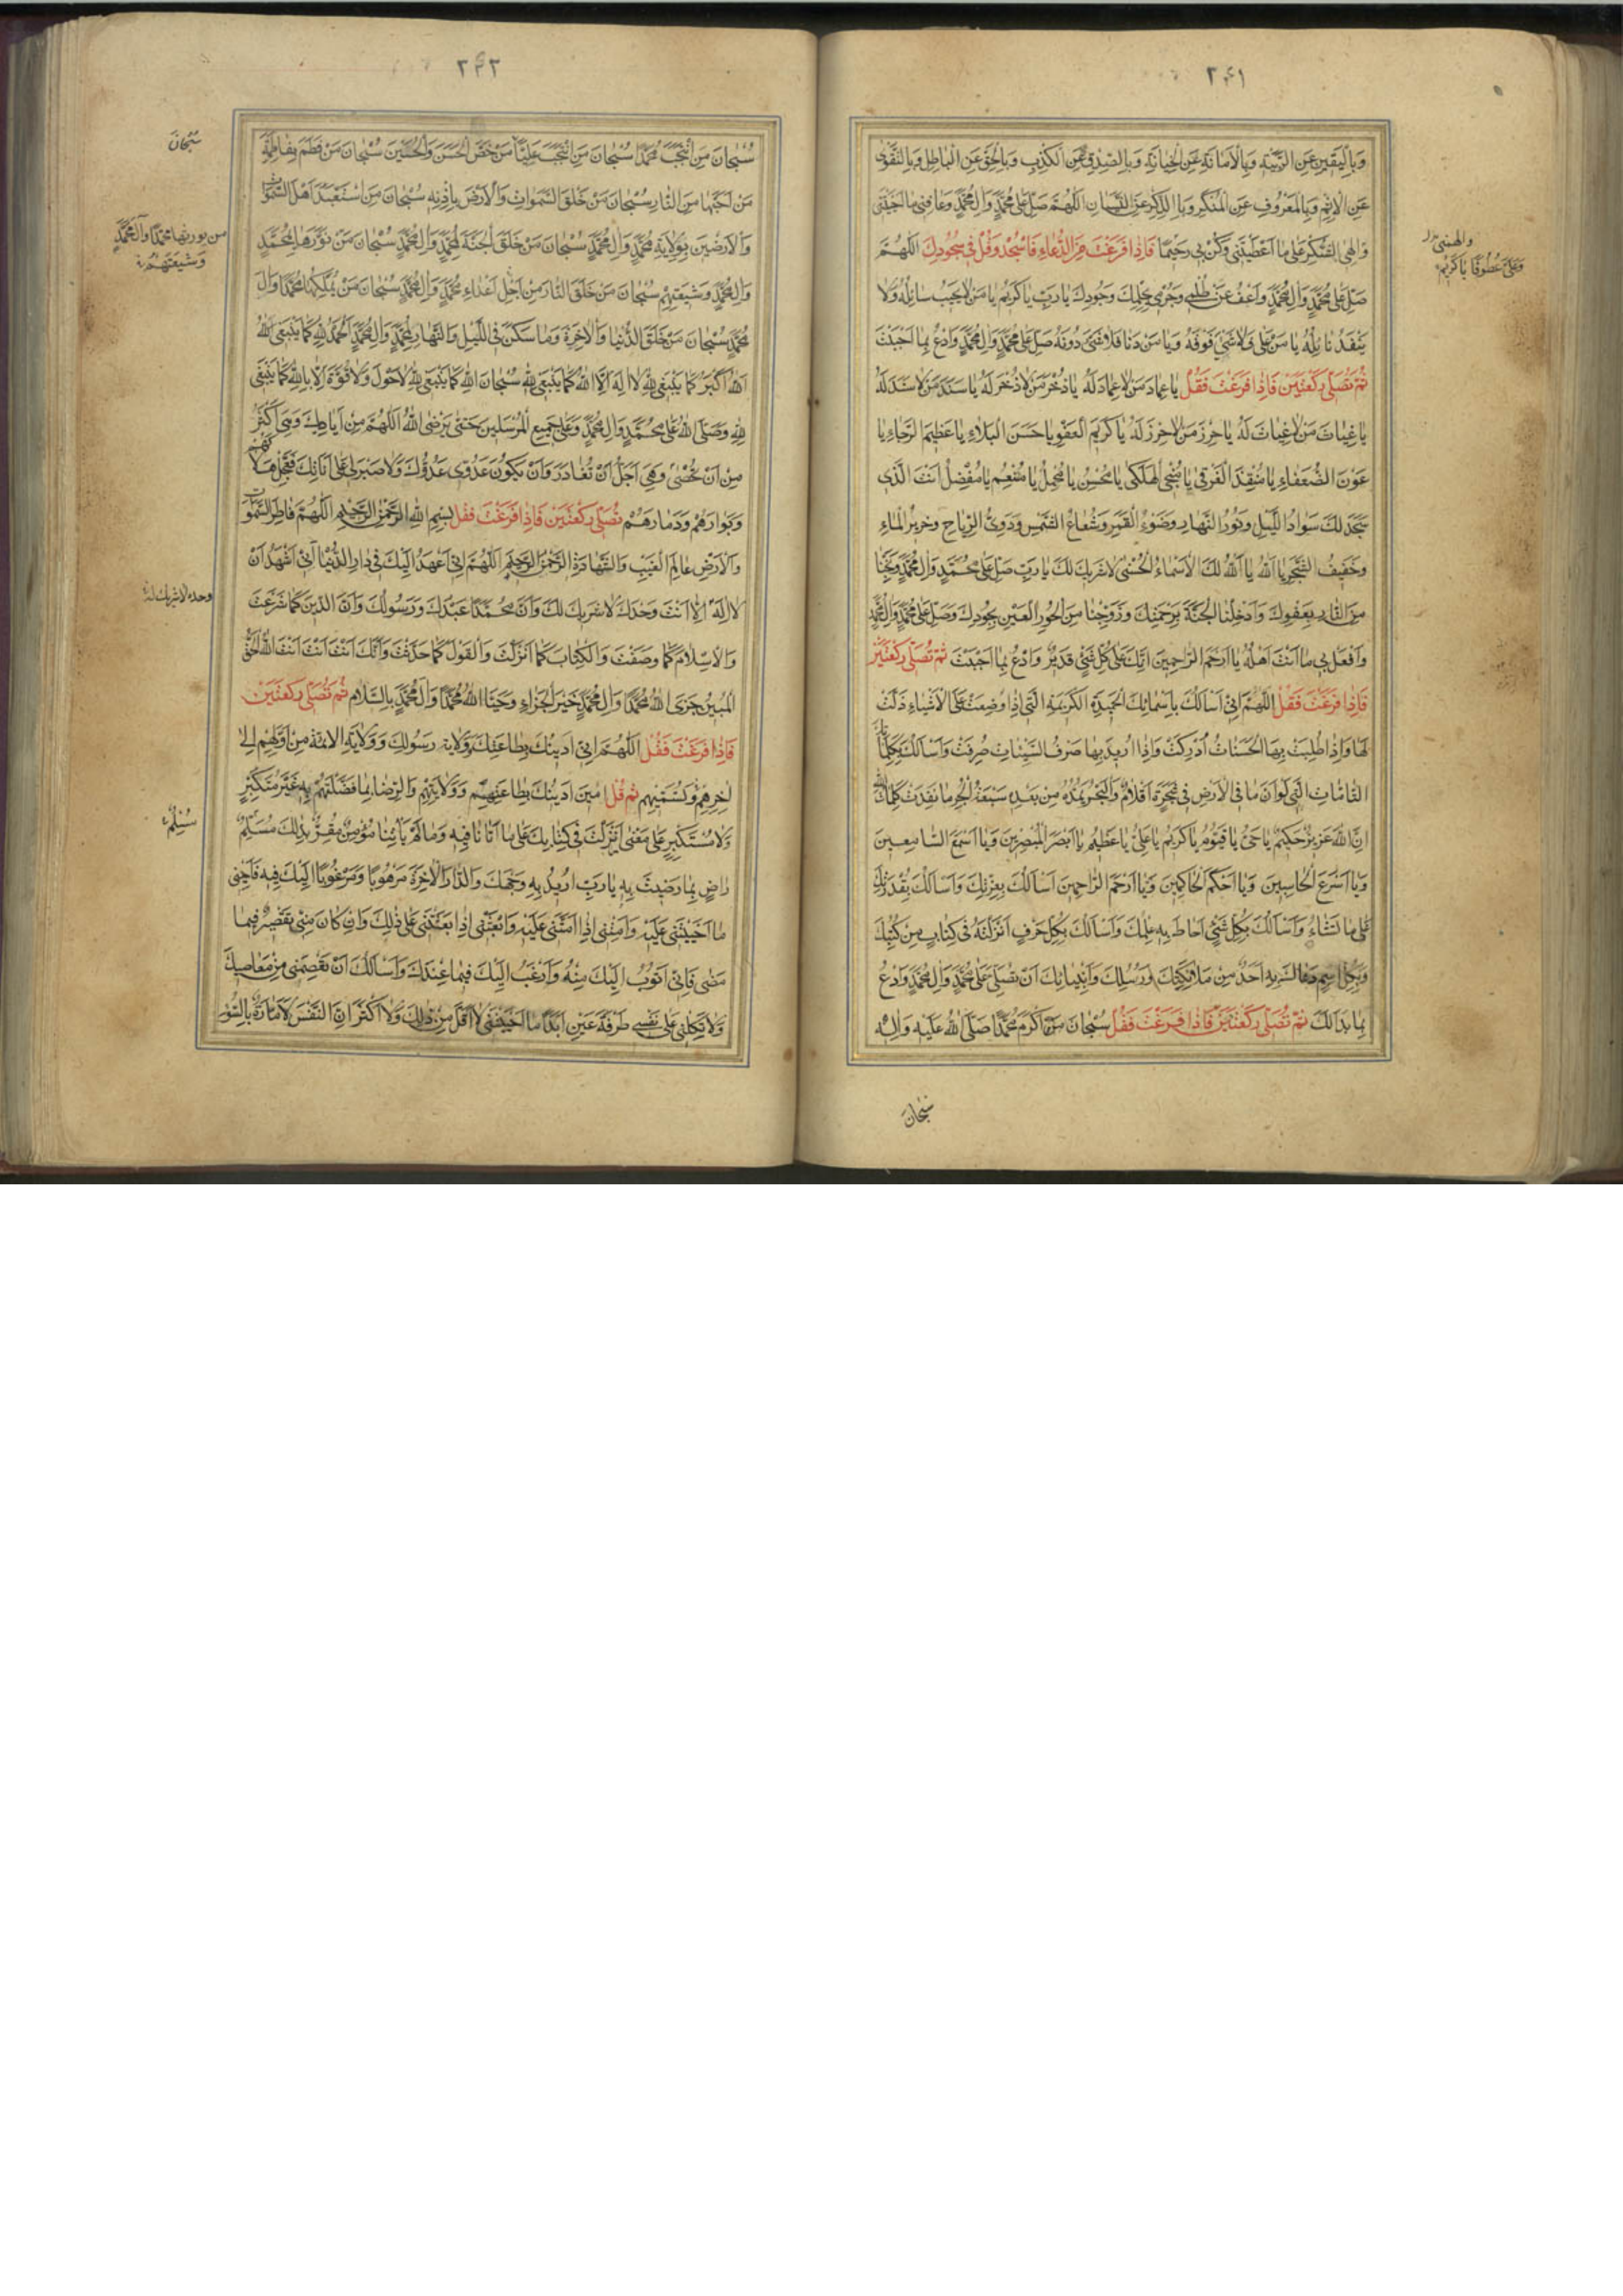 ٢٤١
وَبِالْيَقينِ عَنِ الرّيبَةِ وَبِالْاَمانَةِ عَنِ الْخِيانَةِ وَبِالصِّدْقِ عَنِ الْكَذِبِ وَبِالْحَقِّ عَنِ الْباطِلِ وَبِالتَّقْوى
عَنِ الْاِثْمِ وَبِالْمَعْرُوفِ عَنِ الْمُنْكَرِ وَبِالذِّكْرِ عَنِ النِّسْيانِ اَللّهُمَّ صَلِّ عَلى مُحَمَّدٍ وَآلِ مُحَمَّدٍ وَعافِنى ما اَحْيَيْتَنى
وَالْهِمْنِى الشُّكْرَ عَلى ما اَعْطَيْتَنى وَكُنْ بى رَحيمًا فَاِذا فَرَغْتَ مِنَ الدُّعاءِ فَاسْجُدْ وَقُلْ فى سُجُودِكَ اَللّهُمَّ
صَلِّ عَلى مُحَمَّدٍ وَآلِ مُحَمَّدٍ وَاعْفُ عَنْ ظُلْمى وَجُرْمى بِحِلْمِكَ وَجُودِكَ يا رَبِّ يا كَريمُ يا مَنْ لا يَخيبُ سائِلُهُ وَلا
يَنْفَدُ نائِلُهُ يا مَنْ عَلى فَلا شَىْءَ فَوْقَهُ وَيا مَنْ دَنا فَلا شَىْءَ دُونَهُ صَلِّ عَلى مُحَمَّدٍ وَآلِ مُحَمَّدٍ وَادْعُ بِما اَحْبَبْتَ
ثُمَّ تُصَلّى رَكْعَتَيْنِ فَاِذا فَرَغْتَ فَقُلْ يا عِمادَ مَنْ لا عِمادَ لَهُ يا ذُخْرَ مَنْ لا ذُخْرَ لَهُ يا سَنَدَ مَنْ لا سَنَدَ لَهُ
يا غِياثَ مَنْ لا غِياثَ لَهُ يا حِرْزَ مَنْ لا حِرْزَ لَهُ يا كَريمَ الْعَفْوِ يا حَسَنَ الْبَلاءِ يا عَظيمَ الرَّجاءِ يا
عَوْنَ الضُّعَفاءِ يا مُنْقِذَ الْغَرْقى يا مُنْجِىَ الْهَلْكى يا مُحْسِنُ يا مُجْمِلُ يا مُنْعِمُ يا مُفْضِلُ اَنْتَ الَّذى
سَجَدَ لَكَ سَوادُ اللَّيْلِ وَنُورُ النَّهارِ وَضَوْءُ الْقَمَرِ وَشُعاعُ الشَّمْسِ وَدَوِىُّ الرِّياحِ وَخَريرُ الْماءِ
وَحَفيفُ الشَّجَرِ يا اَللهُ يا اَللهُ لَكَ الْاَسْماءُ الْحُسْنى لا شَريكَ لَكَ يا رَبِّ صَلِّ عَلى مُحَمَّدٍ وَآلِ مُحَمَّدٍ وَنَجِّنا
مِنَ النّارِ بِعَفْوِكَ وَاَدْخِلْنَا الْجَنَّةَ بِرَحْمَتِكَ وَزَوِّجْنا مِنَ الْحُورِ الْعينِ بِجُودِكَ وَصَلِّ عَلى مُحَمَّدٍ وَآلِ مُحَمَّدٍ
وَافْعَلْ بى ما اَنْتَ اَهْلُهُ يا اَرْحَمَ الرّاحِمينَ اِنَّكَ عَلى كُلِّ شَىْءٍ قَديرٌ وَادْعُ بِما اَحْبَبْتَ ثُمَّ تُصَلّى رَكْعَتَيْنِ
فَاِذا فَرَغْتَ فَقُلْ اَللّهُمَّ اِنّى اَسْاَلُكَ بِاَسْمائِكَ الْحَميدَةِ الْكَريمَةِ الَّتى اِذا وُضِعَتْ عَلَى الْاَشْياءِ ذَلَّتْ
لَها وَاِذا طُلِبَتْ بِهَا الْحَسَناتُ اُدْرِكَتْ وَاِذا اُريدَ بِها صَرْفُ السَّيِّئاتِ صُرِفَتْ وَاَسْاَلُكَ بِكَلِماتِكَ
التّامّاتِ الَّتى لَوْ اَنَّ ما فِى الْاَرْضِ مِنْ شَجَرَةٍ اَقْلامٌ وَالْبَحْرُ يَمُدُّهُ مِنْ بَعْدِهِ سَبْعَةُ اَبْحُرٍ ما نَفِدَتْ كَلِماتُ اللهِ
اِنَّ اللهَ عَزيزٌ حَكيمٌ يا حَىُّ يا قَيُّومُ يا كَريمُ يا عَلِىُّ يا عَظيمُ يا اَبْصَرَ الْمُبْصِرينَ وَيا اَسْمَعَ السّامِعينَ
وَيا اَسْرَعَ الْحاسِبينَ وَيا اَحْكَمَ الْحاكِمينَ وَيا اَرْحَمَ الرّاحِمينَ اَسْاَلُكَ بِعِزَّتِكَ وَاَسْاَلُكَ بِقُدْرَتِكَ
عَلى ما تَشاءُ وَاَسْاَلُكَ بِكُلِّ شَىْءٍ اَحاطَ بِهِ عِلْمُكَ وَاَسْاَلُكَ بِكُلِّ حَرْفٍ اَنْزَلْتَهُ فى كِتابٍ مِنْ كُتُبِكَ
وَبِكُلِّ اسْمٍ دَعاكَ بِهِ اَحَدٌ مِنْ مَلائِكَتِكَ وَرُسُلِكَ وَاَنْبِيائِكَ اَنْ تُصَلِّىَ عَلى مُحَمَّدٍ وَآلِ مُحَمَّدٍ وَادْعُ
بِما بَدا لَكَ ثُمَّ تُصَلّى رَكْعَتَيْنِ فَاِذا فَرَغْتَ فَقُلْ سُبْحانَ مَنْ اَكْرَمَ مُحَمَّدًا صَلَّى اللهُ عَلَيْهِ وَآلِهِ
سُبْحانَ
وَعَلَىَّ عَطُوفًا يا كَريمُ
٢٤٢
سُبْحانَ مَنِ انْتَجَبَ مُحَمَّدًا سُبْحانَ مَنِ انْتَجَبَ عَلِيًّا مَنْ خَصَّ الْحَسَنَ وَالْحُسَيْنَ سُبْحانَ مَنْ فَطَمَ بِفاطِمَةَ
مَنْ اَحَبَّها مِنَ النّارِ سُبْحانَ مَنْ خَلَقَ السَّمواتِ وَالْاَرْضَ بِاِذْنِهِ سُبْحانَ مَنِ اسْتَعْبَدَ اَهْلَ السَّمواتِ
وَالْاَرَضينَ بِوِلايَةِ مُحَمَّدٍ وَآلِ مُحَمَّدٍ سُبْحانَ مَنْ خَلَقَ الْجَنَّةَ لِمُحَمَّدٍ وَآلِ مُحَمَّدٍ سُبْحانَ مَنْ نَوَّرَها لِمُحَمَّدٍ
وَآلِ مُحَمَّدٍ وَشيعَتِهِمْ سُبْحانَ مَنْ خَلَقَ النّارَ مِنْ اَجْلِ اَعْداءِ مُحَمَّدٍ وَآلِ مُحَمَّدٍ سُبْحانَ مَنْ يُمَلِّكُها مُحَمَّدًا وَآلَ
مُحَمَّدٍ سُبْحانَ مَنْ خَلَقَ الدُّنْيا وَالْاخِرَةَ وَما سَكَنَ فِى اللَّيْلِ وَالنَّهارِ لِمُحَمَّدٍ وَآلِ مُحَمَّدٍ اَلْحَمْدُ لِلّهِ كَما يَنْبَغى لِلّهِ
اَللهُ اَكْبَرُ كَما يَنْبَغى لِلّهِ لا اِلهَ اِلَّا اللهُ كَما يَنْبَغى لِلّهِ سُبْحانَ اللهِ كَما يَنْبَغى لِلّهِ لا حَوْلَ وَلا قُوَّةَ اِلّا بِاللهِ كَما يَنْبَغى
لِلّهِ وَصَلَّى اللهُ عَلى مُحَمَّدٍ وَآلِ مُحَمَّدٍ وَعَلى جَميعِ الْمُرْسَلينَ حَتّى يَرْضَى اللهُ اَللّهُمَّ مِنْ اَياديكَ وَهِىَ اَكْثَرُ
مِنْ اَنْ تُحْصى وَهِىَ اَجَلُّ اَنْ تُغادَرَ وَاَنْ يَكُونَ عَدُوّى عَدُوَّكَ وَلا صَبْرَ لى عَلى اَناتِكَ فَعَجِّلْ هَلاكَهُمْ
وَبَوارَهُمْ وَدَمارَهُمْ تُصَلّى رَكْعَتَيْنِ فَاِذا فَرَغْتَ فَقُلْ بِسْمِ اللهِ الرَّحْمنِ الرَّحيمِ اَللّهُمَّ فاطِرَ السَّمواتِ
وَالْاَرْضِ عالِمَ الْغَيْبِ وَالشَّهادَةِ الرَّحْمنَ الرَّحيمَ اَللّهُمَّ اِنّى اَعْهَدُ اِلَيْكَ فى دارِ الدُّنْيا اَنّى اَشْهَدُ اَنْ
لا اِلهَ اِلّا اَنْتَ وَحْدَكَ لا شَريكَ لَكَ وَاَنَّ مُحَمَّدًا عَبْدُكَ وَرَسُولُكَ وَاَنَّ الدّينَ كَما شَرَعْتَ
وَالْاِسْلامَ كَما وَصَفْتَ وَالْكِتابَ كَما اَنْزَلْتَ وَالْقَوْلَ كَما حَدَّثْتَ وَاَنَّكَ اَنْتَ اَنْتَ اَنْتَ اللهُ الْحَقُّ
الْمُبينُ جَزَى اللهُ مُحَمَّدًا وَآلَ مُحَمَّدٍ خَيْرَ الْجَزاءِ وَحَيَّا اللهُ مُحَمَّدًا وَآلَ مُحَمَّدٍ بِالسَّلامِ ثُمَّ تُصَلّى رَكْعَتَيْنِ
فَاِذا فَرَغْتَ فَقُلْ اَللّهُمَّ اِنّى اَدينُكَ بِطاعَتِكَ وَوِلايَةِ رَسُولِكَ وَوِلايَةِ الْائِمَّةِ مِنْ اَوَّلِهِمْ اِلى
اخِرِهِمْ وَتُسَمّيهِمْ ثُمَّ قُلْ امينَ اَدينُكَ بِطاعَتِهِمْ وَوِلايَتِهِمْ وَالرِّضا بِما فَضَّلْتَهُمْ بِهِ غَيْرَ مُتَكَبِّرٍ
وَلا مُسْتَكْبِرٍ عَلى مَعْنى ما اَنْزَلْتَ فى كِتابِكَ عَلى ما اَتانا فيهِ وَما لَمْ يَاْتِنا مُؤْمِنٌ مُقِرٌّ بِذلِكَ مُسَلِّمٌ
راضٍ بِما رَضيتَ بِهِ يا رَبِّ اُريدُ بِهِ وَجْهَكَ وَالدّارَ الْاخِرَةَ مَرْهُوبًا وَمَرْغُوبًا اِلَيْكَ فيهِ فَاَحْيِنى
ما اَحْيَيْتَنى عَلَيْهِ وَاَمِتْنى اِذا اَمَتَّنى عَلَيْهِ وَابْعَثْنى اِذا بَعَثْتَنى عَلى ذلِكَ وَاِنْ كانَ مِنّى تَقْصيرٌ فيما
مَضى فَاِنّى اَتُوبُ اِلَيْكَ مِنْهُ وَاَرْغَبُ اِلَيْكَ فيما عِنْدَكَ وَاَسْاَلُكَ اَنْ تَعْصِمَنى مِنْ مَعاصيكَ
وَلا تَكِلْنى عَلى نَفْسى طَرْفَةَ عَيْنٍ اَبَدًا ما اَحْيَيْتَنى لا اَقَلَّ مِنْ ذلِكَ وَلا اَكْثَرَ اِنَّ النَّفْسَ لَاَمّارَةٌ بِالسُّوءِ
سُبْحانَ
من يورثها محمدًا وآلَ مُحَمَّدٍ
وَشيعَتَهُمْ
وحده لا شريك له